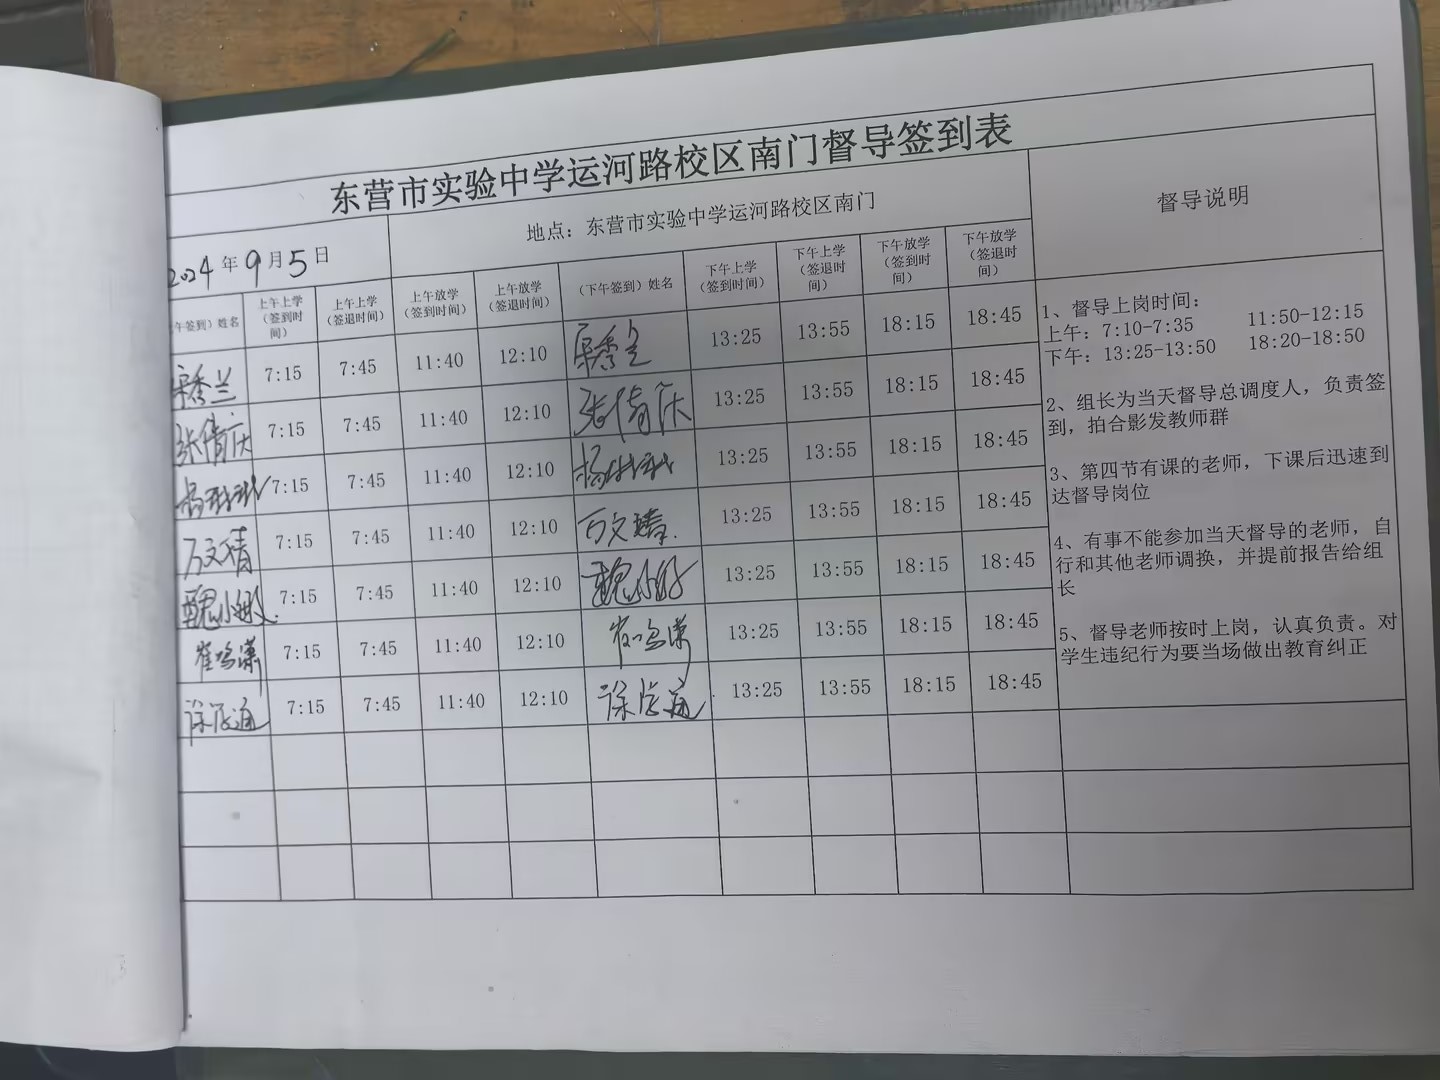 东营市实验中学运河路校区南门督导签到表
2024年9月5日
地点：东营市实验中学运河路校区南门
督导说明
午签到）姓名 上午上学（签到时间） 上午上学（签退时间） 上午放学（签到时间） 上午放学（签退时间） （下午签到）姓名 下午上学（签到时间） 下午上学（签退时间） 下午放学（签到时间） 下午放学（签退时间）
秀兰 7:15 7:45 11:40 12:10 秀兰 13:25 13:55 18:15 18:45
张倩 7:15 7:45 11:40 12:10 张倩 13:25 13:55 18:15 18:45
杨 7:15 7:45 11:40 12:10 杨 13:25 13:55 18:15 18:45
万文婧 7:15 7:45 11:40 12:10 万文婧 13:25 13:55 18:15 18:45
魏小娜 7:15 7:45 11:40 12:10 魏小 13:25 13:55 18:15 18:45
崔鸣潇 7:15 7:45 11:40 12:10 崔鸣潇 13:25 13:55 18:15 18:45
徐 7:15 7:45 11:40 12:10 徐 13:25 13:55 18:15 18:45
1、督导上岗时间：
上午：7:10-7:35 11:50-12:15
下午：13:25-13:50 18:20-18:50
2、组长为当天督导总调度人，负责签
到，拍合影发教师群
3、第四节有课的老师，下课后迅速到
达督导岗位
4、有事不能参加当天督导的老师，自
行和其他老师调换，并提前报告给组
长
5、督导老师按时上岗，认真负责。对
学生违纪行为要当场做出教育纠正